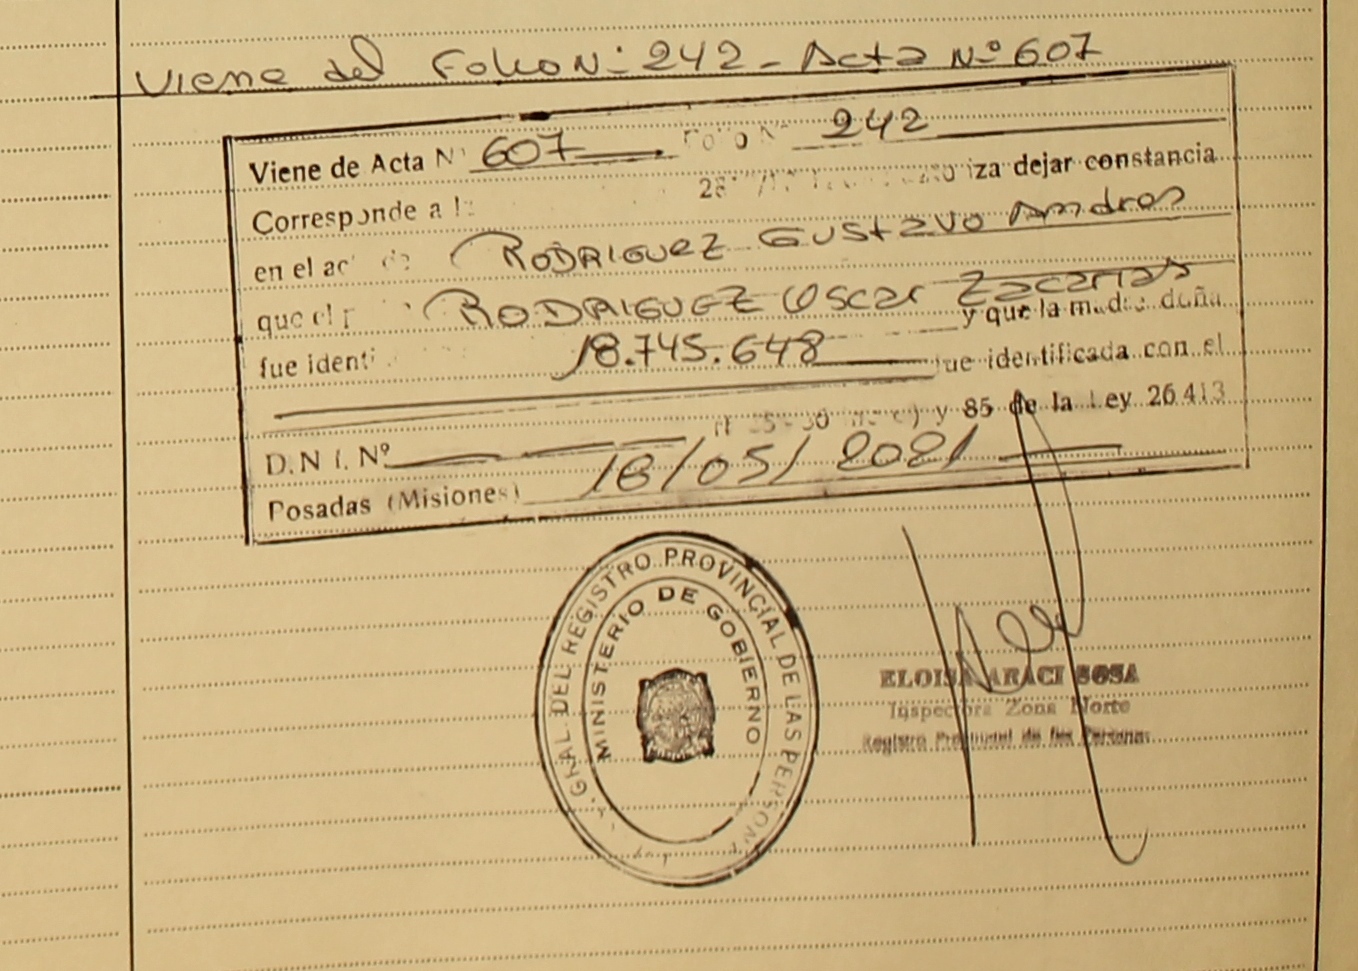 Viene del Folio N: 242 - Acta Nº 607
Viene de Acta Nº 607 Folio Nº 242
Corresponde a la iza dejar constancia
en el ac RODRIGUEZ Gustavo Andres
que el RODRIGUEZ Oscar Zacarias
fue identi 18.745.648 y que la madre doña
fue identificada con el
D.N.I. Nº y 85 de la Ley 26413
Posadas (Misiones) 18/05/2021
GRAL. DEL REGISTRO PROVINCIAL DE LAS PERSON
MINISTERIO DE GOBIERNO
ELOISA ARACI SOSA
Inspectora Zona Norte
Registro Provincial de las Personas